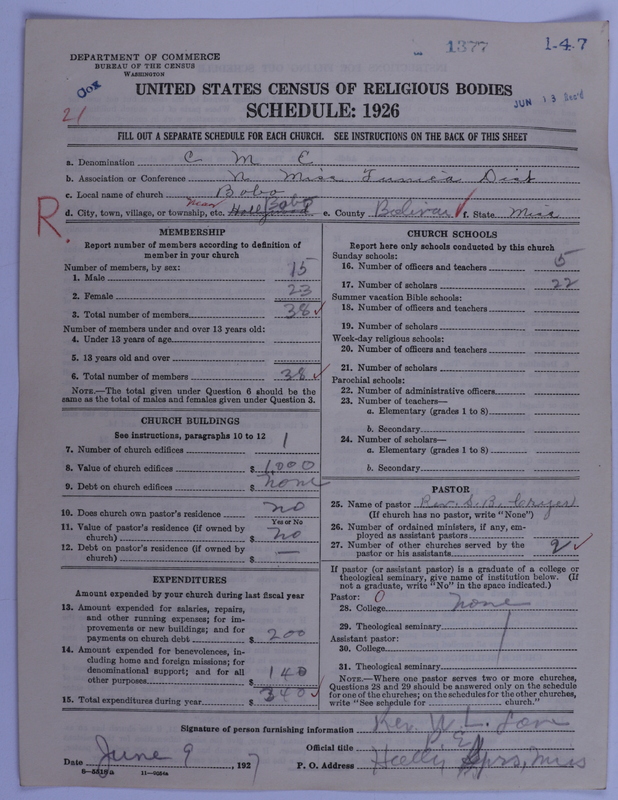 1377
1-4-7
DEPARTMENT OF COMMERCE
BUREAU OF THE CENSUS
WASHINGTON
Cox
21
UNITED STATES CENSUS OF RELIGIOUS BODIES
JUN 13 Rec'd
SCHEDULE: 1926
FILL OUT A SEPARATE SCHEDULE FOR EACH CHURCH. SEE INSTRUCTIONS ON THE BACK OF THIS SHEET
a. Denomination C M E
b. Association or Conference N Miss Tunica Dist
c. Local name of church Bobo
R.
d. City, town, village, or township, etc. near Bobo e. County Bolivar f. State Miss
MEMBERSHIP
Report number of members according to definition of
member in your church
Number of members, by sex:
1. Male 15
2. Female 23
3. Total number of members 38
Number of members under and over 13 years old:
4. Under 13 years of age
5. 13 years old and over
6. Total number of members 38
NOTE.—The total given under Question 6 should be the
same as the total of males and females given under Question 3.
CHURCH BUILDINGS
See instructions, paragraphs 10 to 12
7. Number of church edifices 1
8. Value of church edifices $ 1,000
9. Debt on church edifices $ none
10. Does church own pastor's residence no
Yes or No
11. Value of pastor's residence (if owned by
church) $ no
12. Debt on pastor's residence (if owned by
church) $ —
EXPENDITURES
Amount expended by your church during last fiscal year
13. Amount expended for salaries, repairs,
and other running expenses; for im-
provements or new buildings; and for
payments on church debt $ 200
14. Amount expended for benevolences, in-
cluding home and foreign missions; for
denominational support; and for all
other purposes $ 140
15. Total expenditures during year $ 340
CHURCH SCHOOLS
Report here only schools conducted by this church
Sunday schools:
16. Number of officers and teachers 5
17. Number of scholars 22
Summer vacation Bible schools:
18. Number of officers and teachers
19. Number of scholars
Week-day religious schools:
20. Number of officers and teachers
21. Number of scholars
Parochial schools:
22. Number of administrative officers
23. Number of teachers—
a. Elementary (grades 1 to 8)
b. Secondary
24. Number of scholars—
a. Elementary (grades 1 to 8)
b. Secondary
PASTOR
25. Name of pastor Rev. S. B.
(If church has no pastor, write "None")
26. Number of ordained ministers, if any, em-
ployed as assistant pastors
27. Number of other churches served by the
pastor or his assistants 2
If pastor (or assistant pastor) is a graduate of a college or
theological seminary, give name of institution below. (If
not a graduate, write "No" in the space indicated.)
Pastor: 0
28. College none
29. Theological seminary
Assistant pastor:
30. College
31. Theological seminary
NOTE.—Where one pastor serves two or more churches,
Questions 28 and 29 should be answered only on the schedule
for one of the churches; on the schedules for the other churches,
write "See schedule for church."
Signature of person furnishing information Rev. W. L.
Official title P. E.
Date June 9, 1927 P. O. Address Holly Spgs, Miss
6—5519a 11—9264a